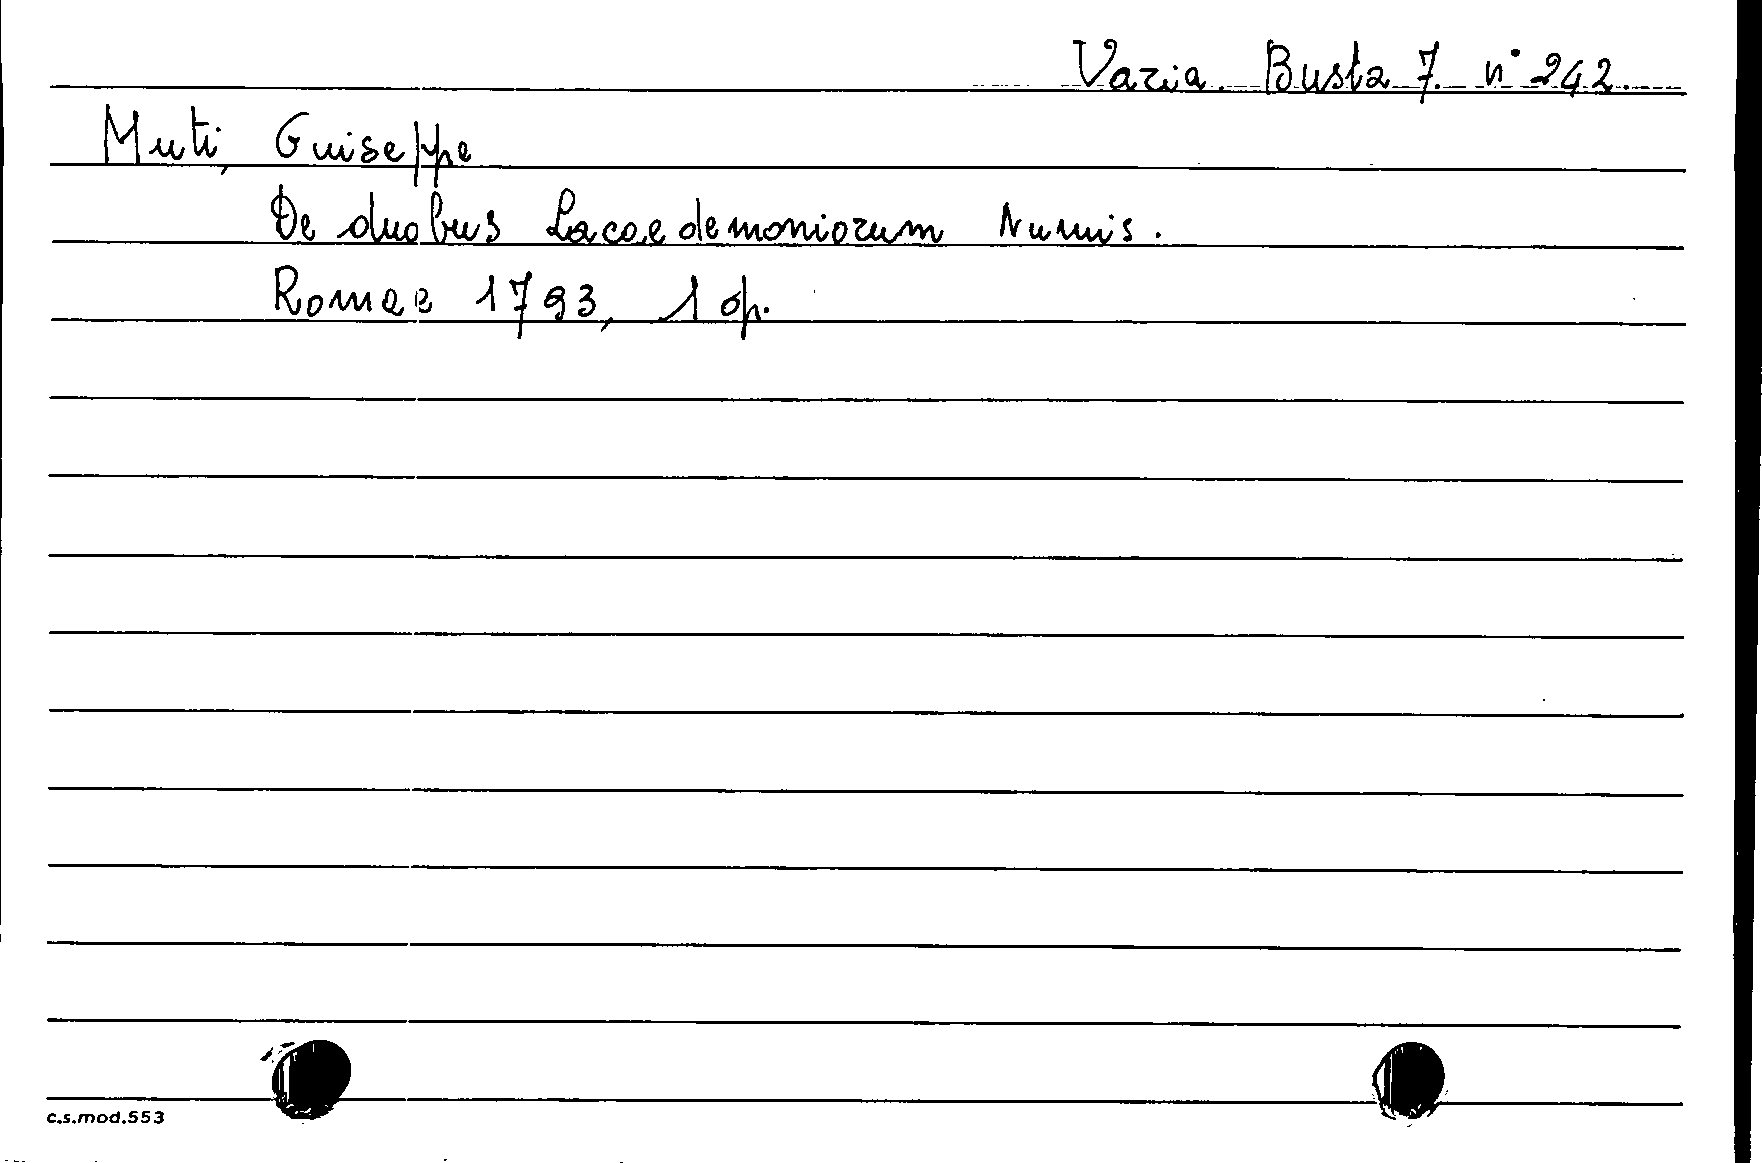 Varia. Busta 7. n° 242.
Muti, Guiseppe
De duobus Lacaedemoniorum Numis.
Romae 1793, 1 op.
c.s.mod.553